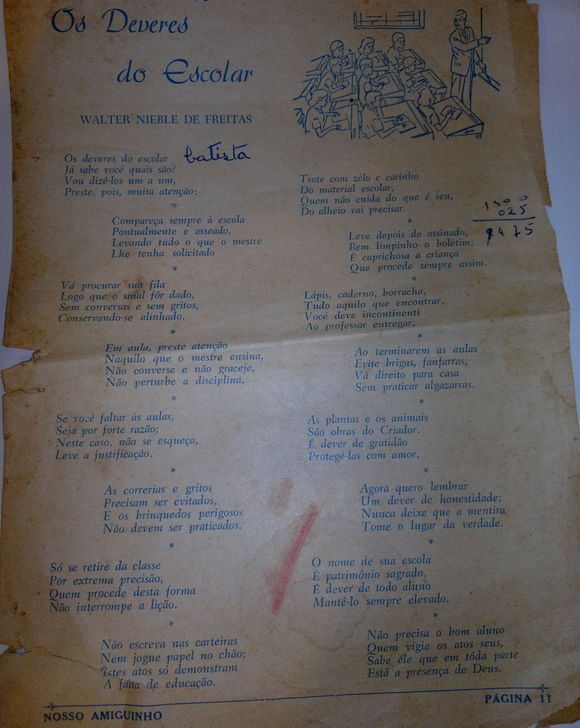 Os Deveres
do Escolar
WALTER NIEBLE DE FREITAS
Os deveres do escolar
Já sabe você quais são?
Vou dizê-los um a um,
Preste, pois, muita atenção:
batista
Compareça sempre à escola
Pontualmente e asseado,
Levando tudo o que o mestre
Lhe tenha solicitado
*
Vá procurar sua fila
Logo que o sinal fôr dado,
Sem conversas e sem gritos,
Conservando-se alinhado.
*
Em aula, preste atenção
Naquilo que o mestre ensina,
Não converse e não graceje,
Não perturbe a disciplina.
*
Se você faltar às aulas,
Seja por forte razão;
Neste caso, não se esqueça,
Leve a justificação.
*
As correrias e gritos
Precisam ser evitados,
E os brinquedos perigosos
Não devem ser praticados.
*
Só se retire da classe
Por extrema precisão,
Quem procede desta forma
Não interrompe a lição.
*
Não escreva nas carteiras
Nem jogue papel no chão;
Estes atos só demonstram
A falta de educação.
Trate com zêlo e carinho
Do material escolar,
Quem não cuida do que é seu,
Do alheio vai precisar.
*
1500
025
1475
Leve depois de assinado,
Bem limpinho o boletim;
É caprichosa a criança
Que procede sempre assim.
*
Lápis, caderno, borracha,
Tudo aquilo que encontrar,
Você deve incontinenti
Ao professor entregar.
*
Ao terminarem as aulas
Evite brigas, fanfarras;
Vá direito para casa
Sem praticar algazarras.
*
As plantas e os animais
São obras do Criador.
É dever de gratidão
Protegê-las com amor.
*
Agora quero lembrar
Um dever de honestidade;
Nunca deixe que a mentira
Tome o lugar da verdade.
*
O nome de sua escola
É patrimônio sagrado,
É dever de todo aluno
Mantê-lo sempre elevado.
*
Não precisa o bom aluno
Quem vigie os atos seus,
Sabe êle que em tôda parte
Está a presença de Deus.
NOSSO AMIGUINHO
PÁGINA 11